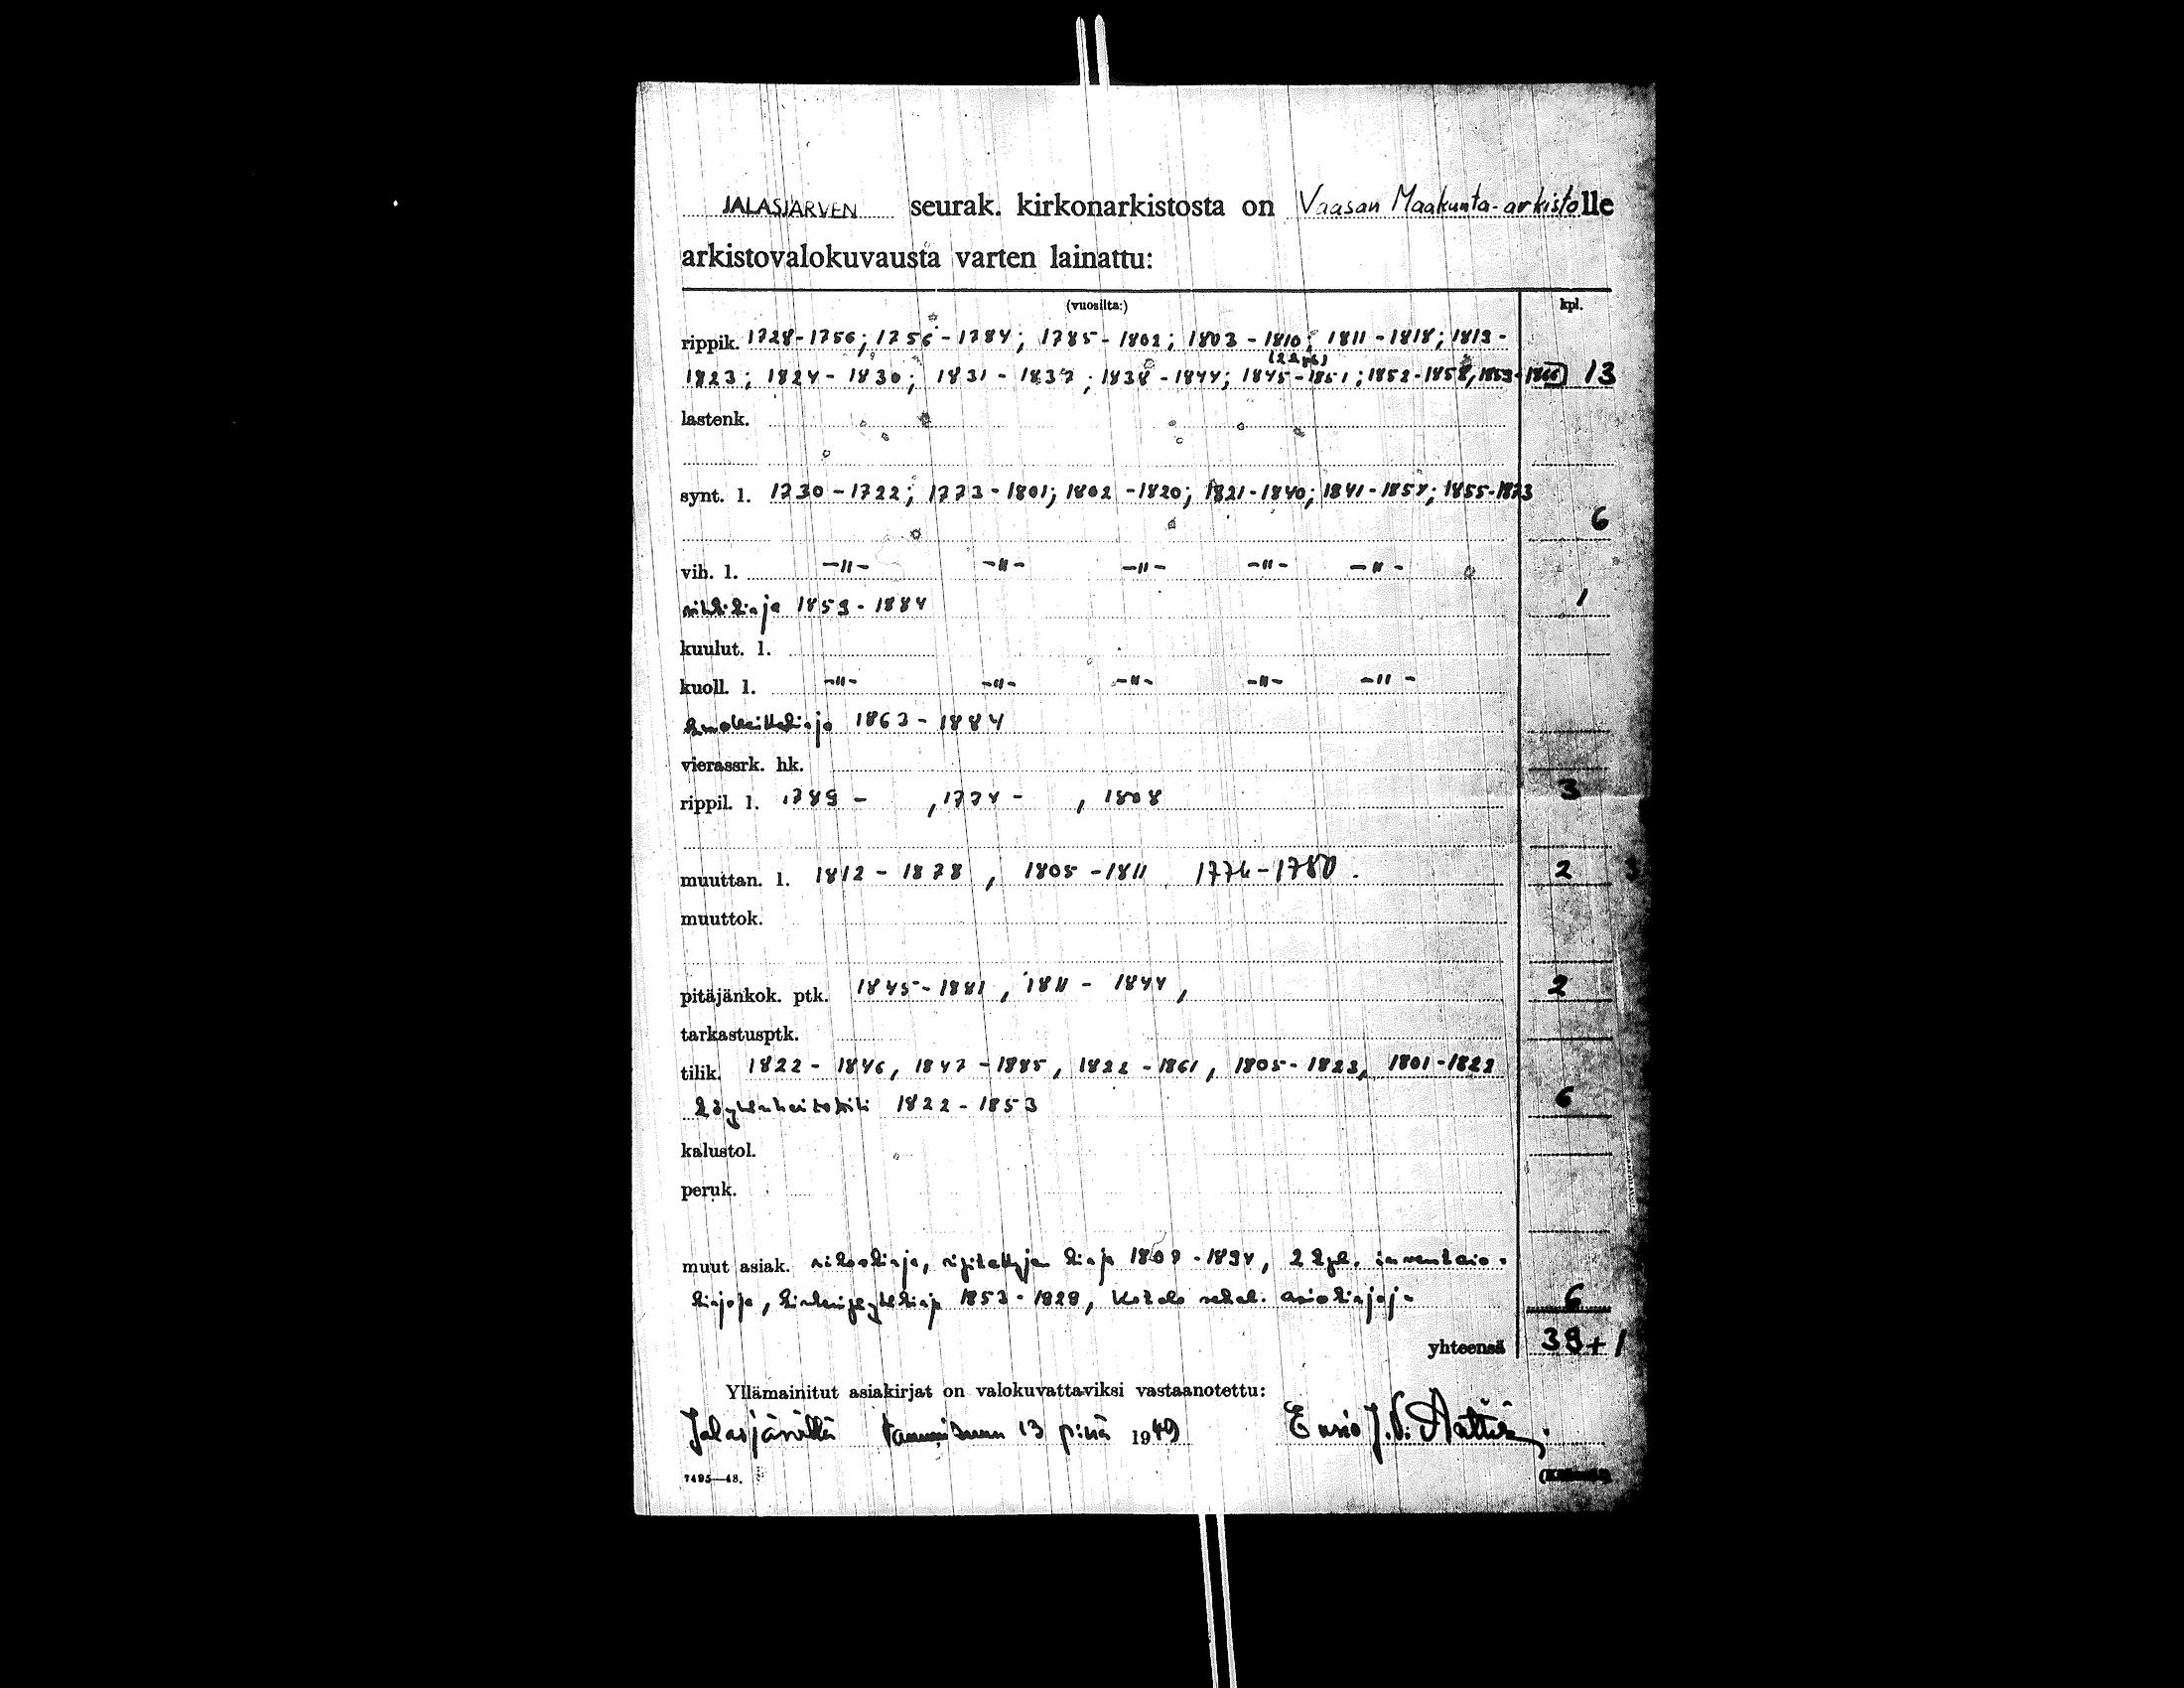 JALASJARVEN seurak. kirkonarkistosta on Vaasan Maakunta-arkistolle
arkistovalokuvausta varten lainattu:
(vuosilta:) kpl.
rippik. 1728-1756; 1756-1784; 1785-1802; 1803-1810; 1811-1818; 1813-
(22 kpl)
1823; 1824-1830; 1831-1837; 1838-1844; 1845-1851; 1852-1858, 1859-1866 13
lastenk.
synt. l. 1730-1722; 1773-1801; 1802-1820; 1821-1840; 1841-1854; 1855-1873
6
vih. l. -"- -"- -"- -"- -"-
vihkikirja 1859-1884 1
kuulut. l.
kuoll. l. -"- -"- -"- -"- -"-
1863-1884
vierassrk. hk.
3
rippil. l. 1789- , 1774- , 1808
muuttan. l. 1812-1878, 1805-1811 1774-1780. 2 3
muuttok.
pitäjänkok. ptk. 1845-1881, 1811-1844, 2
tarkastusptk.
tilik. 1822-1846, 1847-1885, 1822-1861, 1805-1823, 1801-1822
1822-1853 6
kalustol.
peruk.
muut asiak. rikoskirja, ripitettyjen kirja 1809-1894, 2 kpl. inventaio-
kirjoja, 1853-1828, sekal. asiakirjoja 6
yhteensä 39+1
Yllämainitut asiakirjat on valokuvattaviksi vastaanotettu:
Jalasjärvellä Tammikuun 13 p:nä 1949 Ensio J.
7495—48.